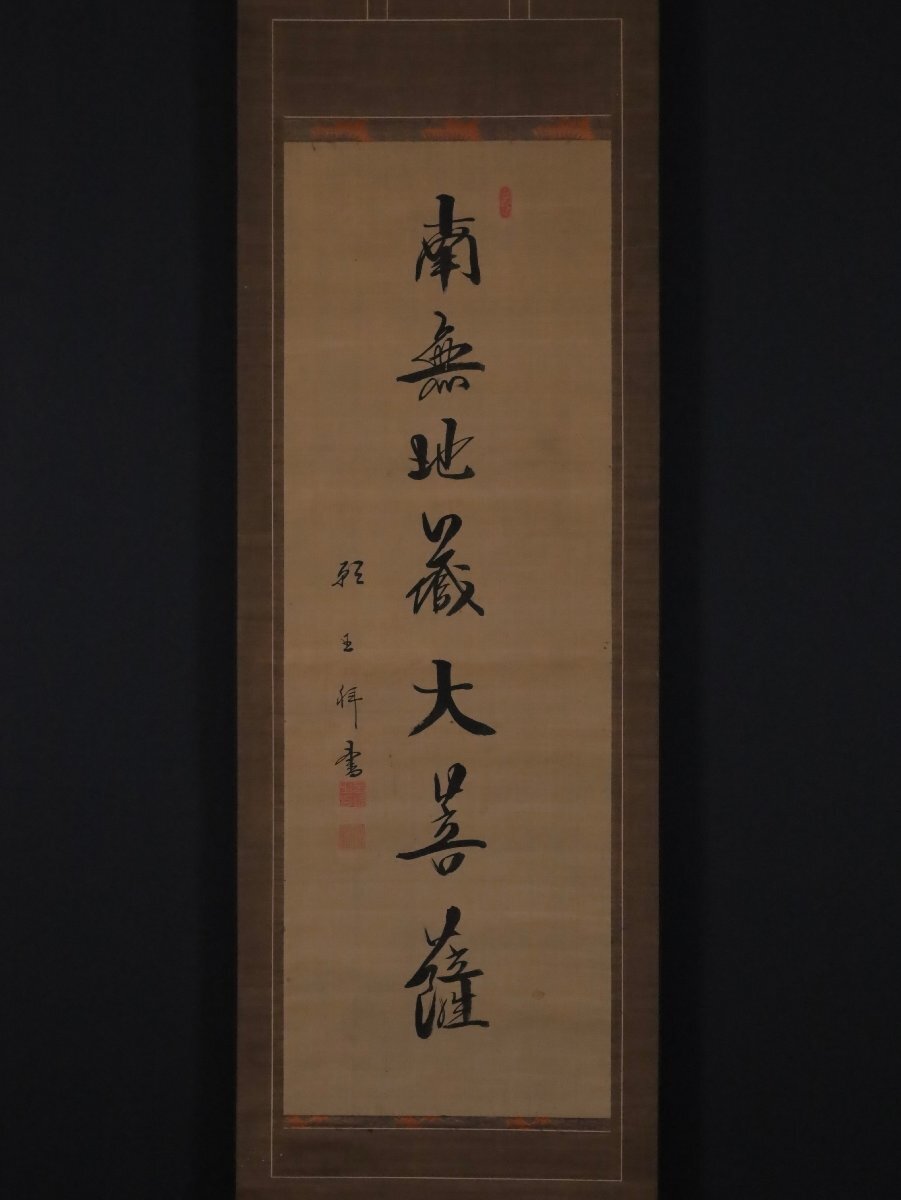 南無地蔵大菩薩
願王拜書